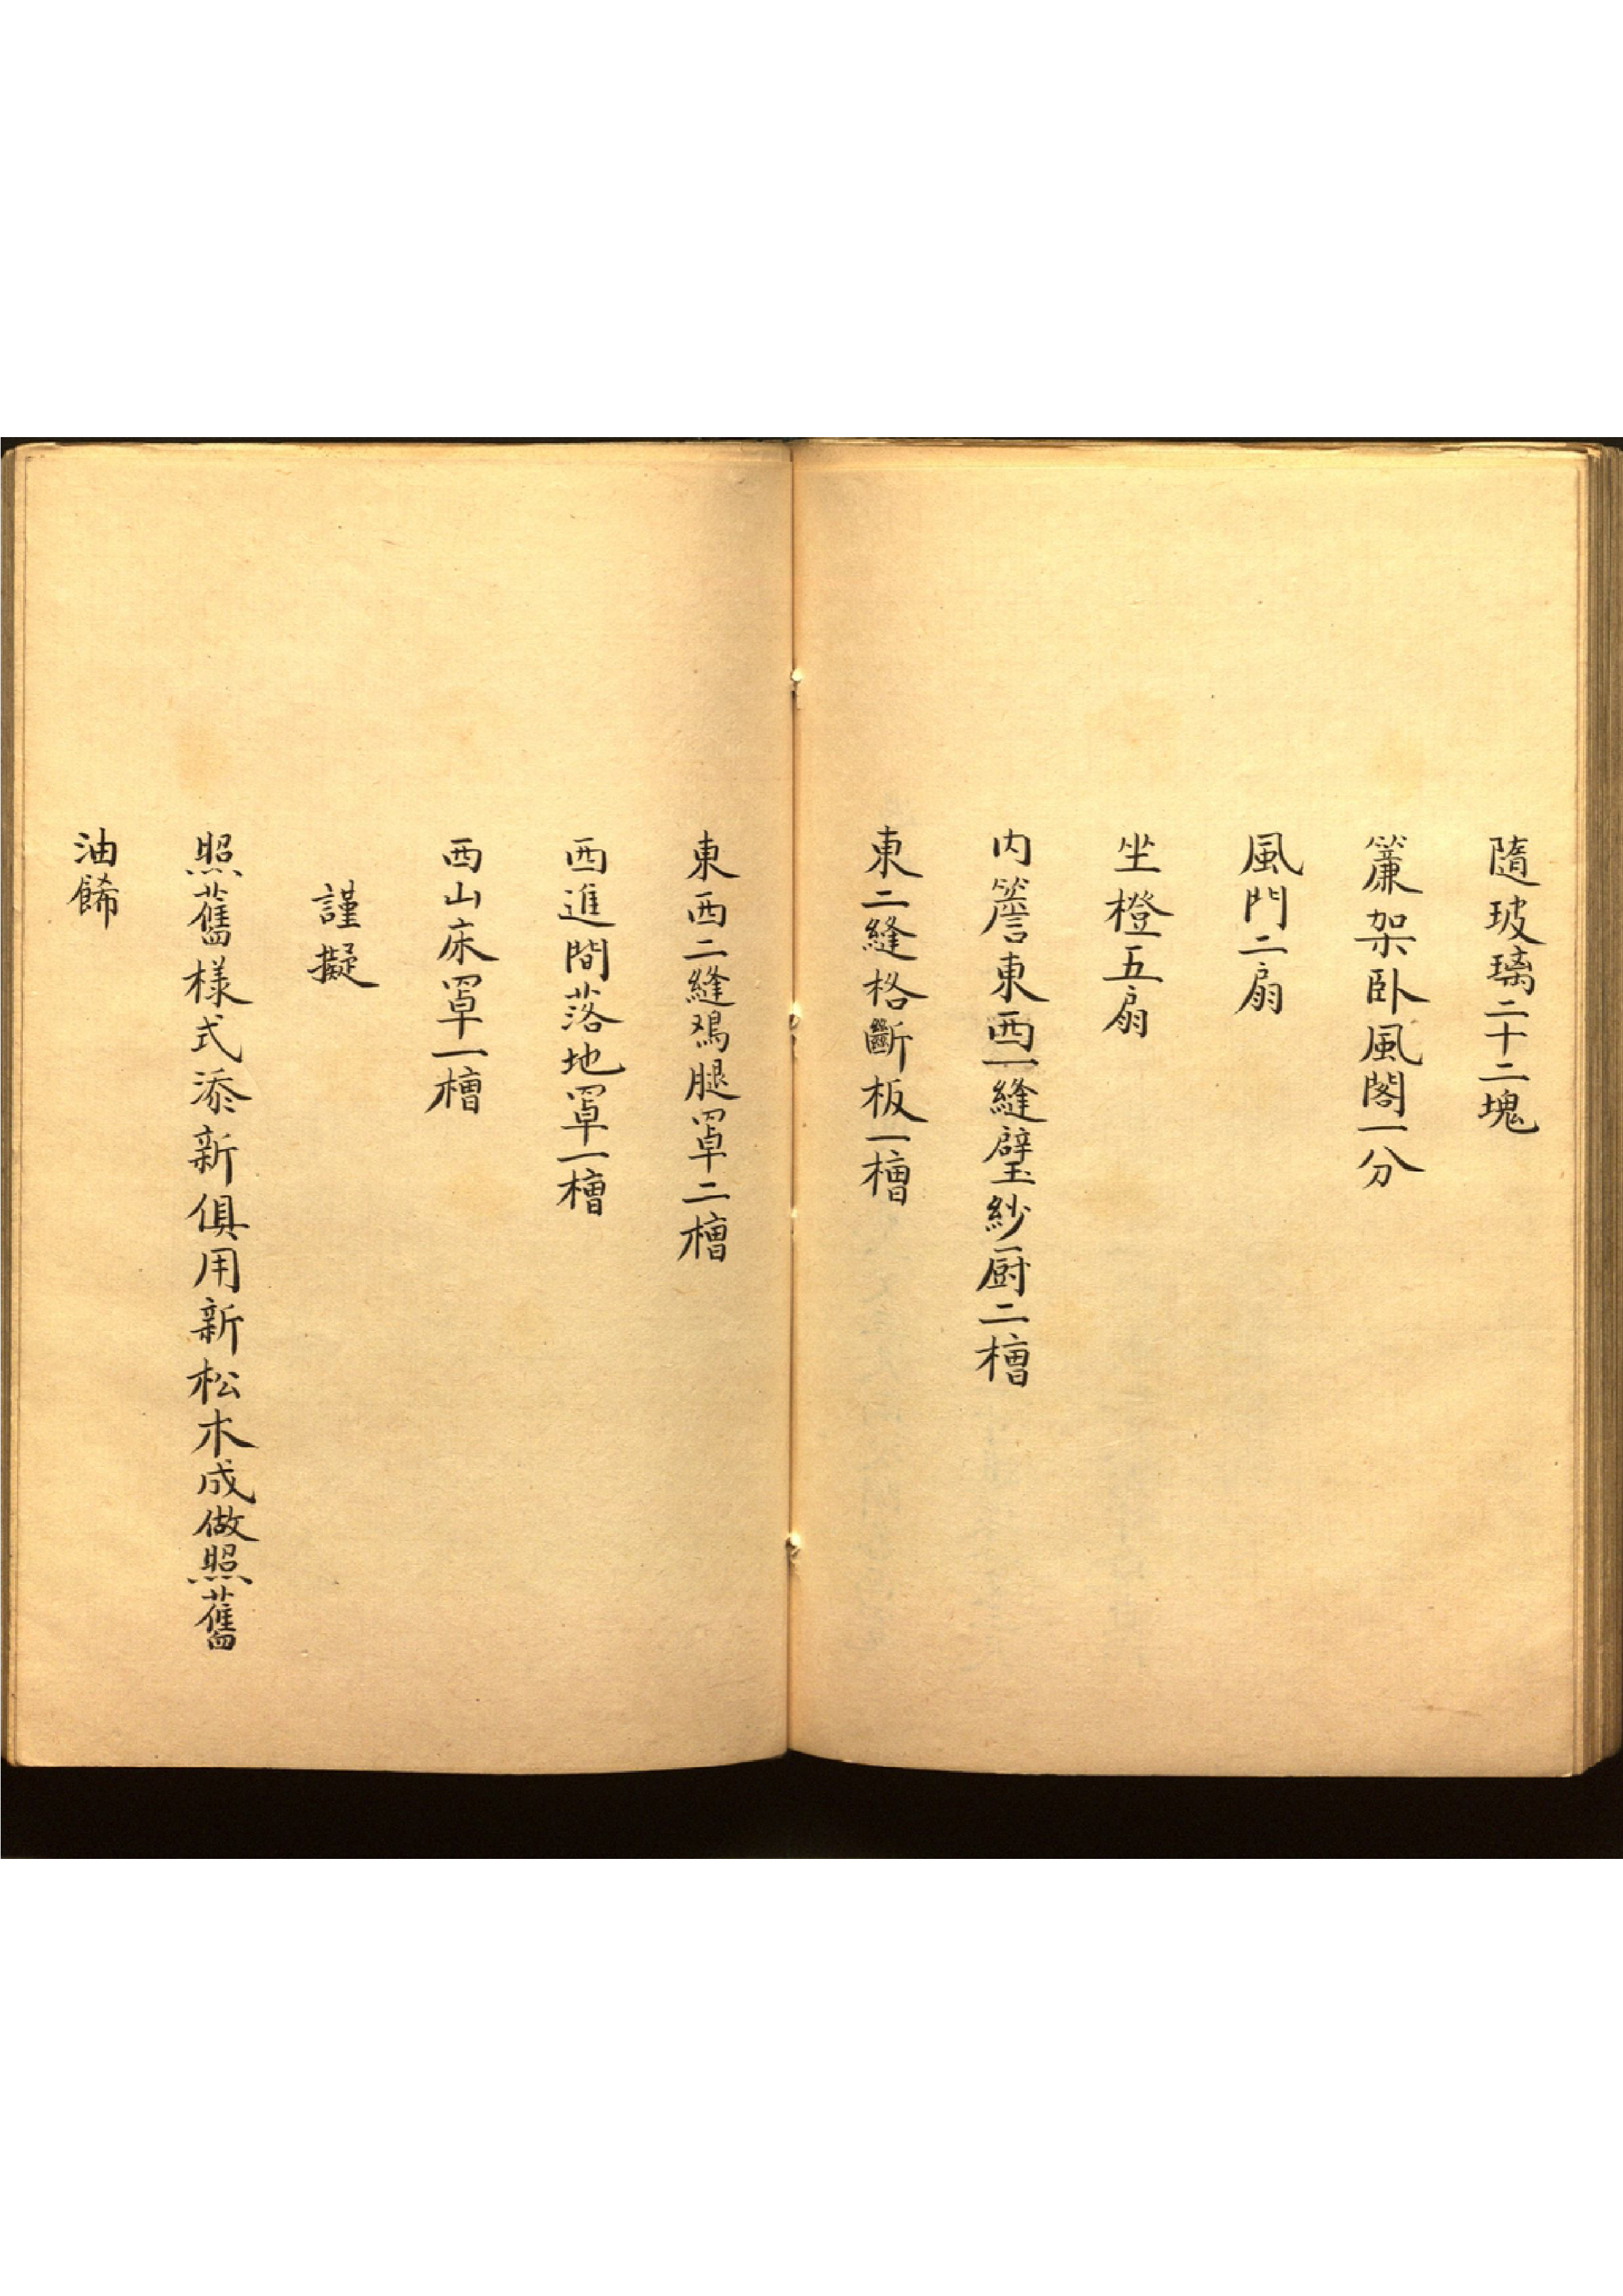 隨玻璃二十二塊
簾架卧風閣一分
風門二扇
坐橙五扇
内簷東西一縫璧紗厨二槽
東二縫格斷板一槽
東西二縫鵶腿罩二槽
西進間落地罩一槽
西山床罩一槽
謹擬
照舊樣式添新俱用新松木成做照舊
油餙